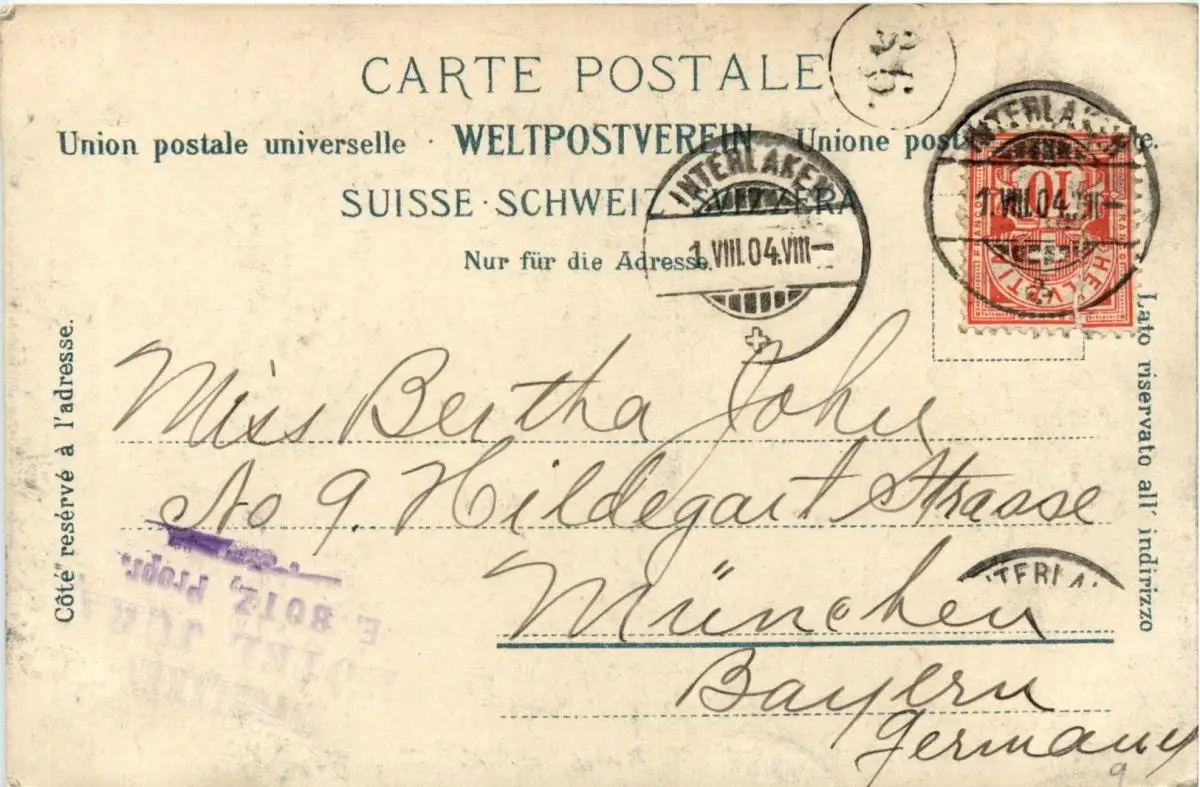 CARTE POSTALE
36.
Union postale universelle · WELTPOSTVEREIN · Unione post
SUISSE · SCHWEIZ SVIZZERA
Nur für die Adresse.
INTERLAKEN
1.VIII.04.VIII–
INTERLAKEN
1.VIII.04.VIII–
10
FRANCO
HELVETIA
Côté resérvé à l'adresse.
Lato riservato all' indirizzo
Miss Bertha John
No 9. Hildegart Strasse
München
Bayern
Germany
9
INTERLA